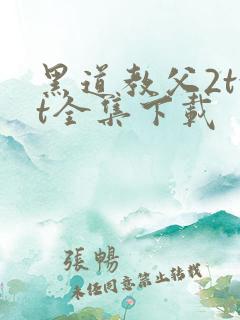 黑道教父2t
t全集下载
張暢
未经同意禁止转载